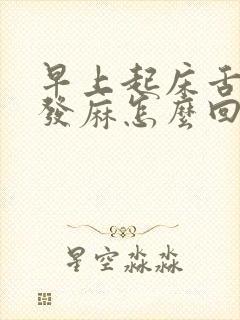 早上起床舌
發麻怎麼回
星空淼淼